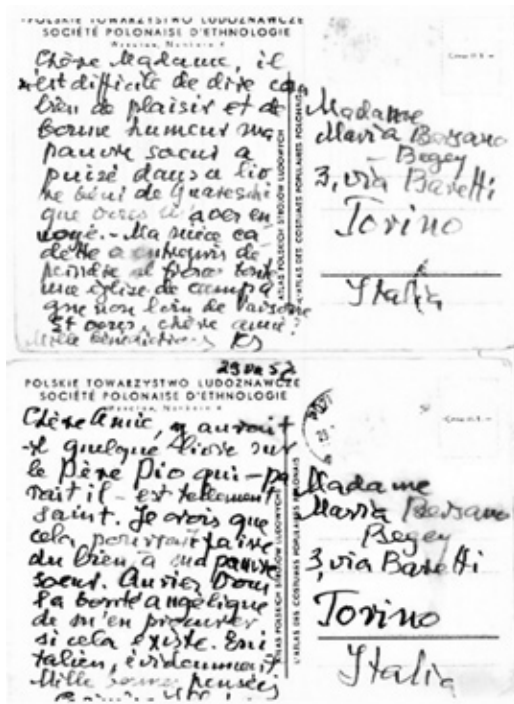 POLSKIE TOWARZYSTWO LUDOZNAWCZE
SOCIÉTÉ POLONAISE D'ETHNOLOGIE
Chère Madame, il
est difficile de dire com
bien de plaisir et de
bonne humeur ma
pauvre soeur a
puisé dans ce liv
re béni de Guareschi
que vous m'avez en
voyé. - Ma nièce ca
dette a entrepris de
peindre al fresco toute
une église de campa
gne non loin de
Et vous, chère amie?
Mille bénédictions
ATLAS POLSKICH STROJÓW LUDOWYCH
L'ATLAS DES COSTUMES POPULAIRES POLONAIS
Madame
Maria Bersano
- Begey
3, via Baretti
Torino
Italia
POLSKIE TOWARZYSTWO LUDOZNAWCZE
SOCIÉTÉ POLONAISE D'ETHNOLOGIE
Chère Amie, y aurait
-il quelque livre sur
le Père Pio qui - pa
rait il - est tellement
saint. Je crois que
cela pourrait faire
du bien, à ma pauvre
soeur. Auriez Vous
la bonté angélique
de m'en procurer
si cela existe. En i
talien, évidemment
Mille bonnes pensées
ATLAS POLSKICH STROJÓW LUDOWYCH
L'ATLAS DES COSTUMES POPULAIRES POLONAIS
Madame
Maria Bersano
Begey
3, via Baretti
Torino
Italia